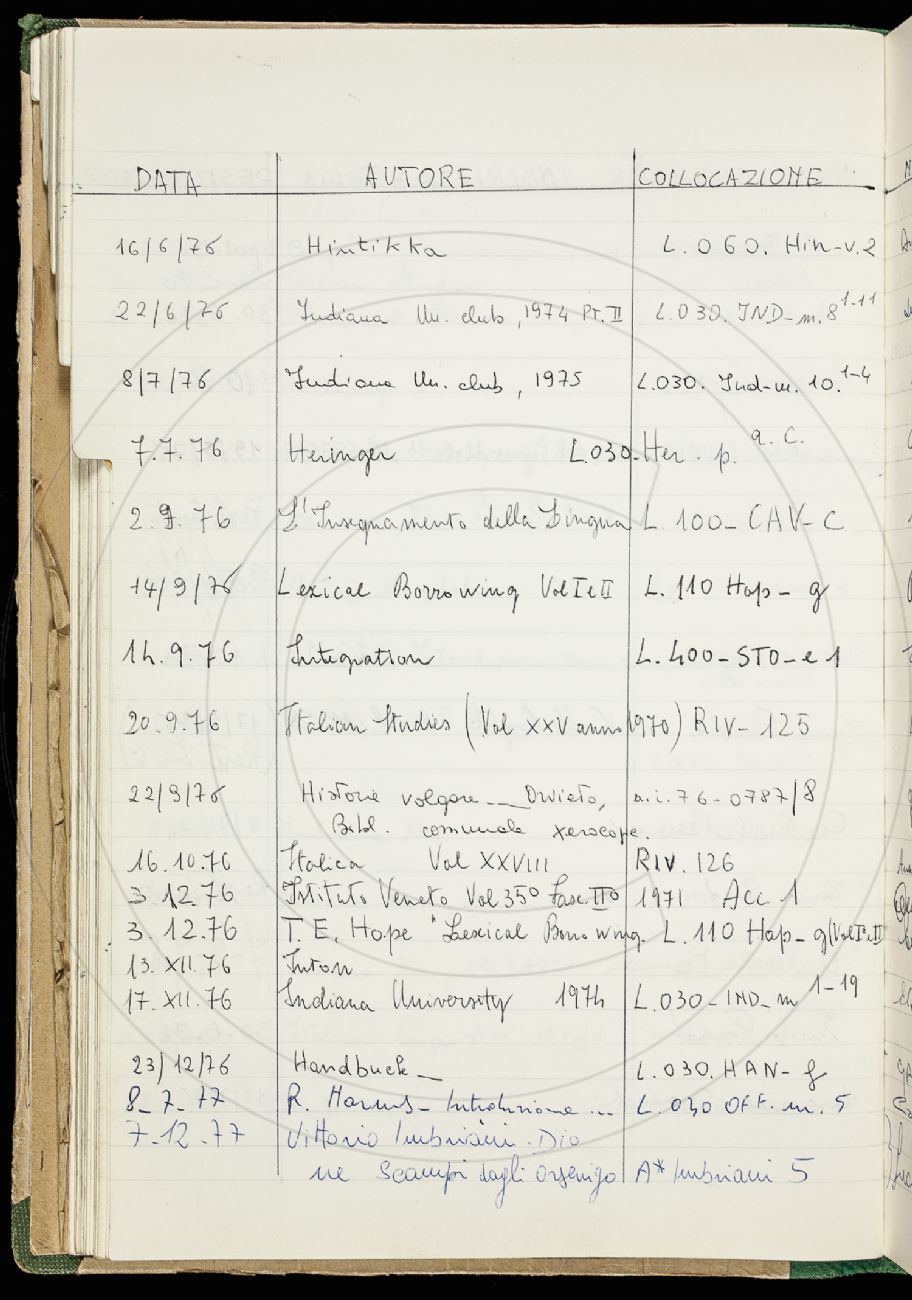 DATA AUTORE COLLOCAZIONE
16/6/76 Hintikka L. 060. Hin-v.2
22/6/76 Indiana Un. club, 1974 Pt. II L.030. IND-m.8 1-11
8/7/76 Indiana Un. club, 1975 L.030. Ind-m. 10. 1-4
7.7.76 Heringer L.030. Her. p. a.c.
2.9.76 L'Insegnamento della Lingua L 100- CAV- C
14/9/76 Lexical Borrowing Vol I e II L. 110 Hop- g
14.9.76 Integration L. 400- STO- e 1
20.9.76 Italian Studies (Vol XXV anno 1970) RIV- 125
22/9/76 Historie volgare __ Orvieto, a.i.76-0787/8
Bibl. comunale xerocope.
16.10.76 Italica Vol XXVIII RIV. 126
3.12.76 Istituto Veneto Vol 35° Fasc. II° 1971 Acc 1
3.12.76 T. E. Hope "Lexical Borrowing. L. 110 Hop- g (Vol I e II
13. XII. 76 Inton
17. XII. 76 Indiana University 1974 L.030- IND- m 1-19
23/12/76 Handbuch_ L.030. HAN- g
8_ 7_ 77 R. - Introduzione ... L. 030 OFF. m. 5
7-12-77 Vittorio Imbriani. Dio
ne scampi dagli Orsenigo A* Imbriani 5